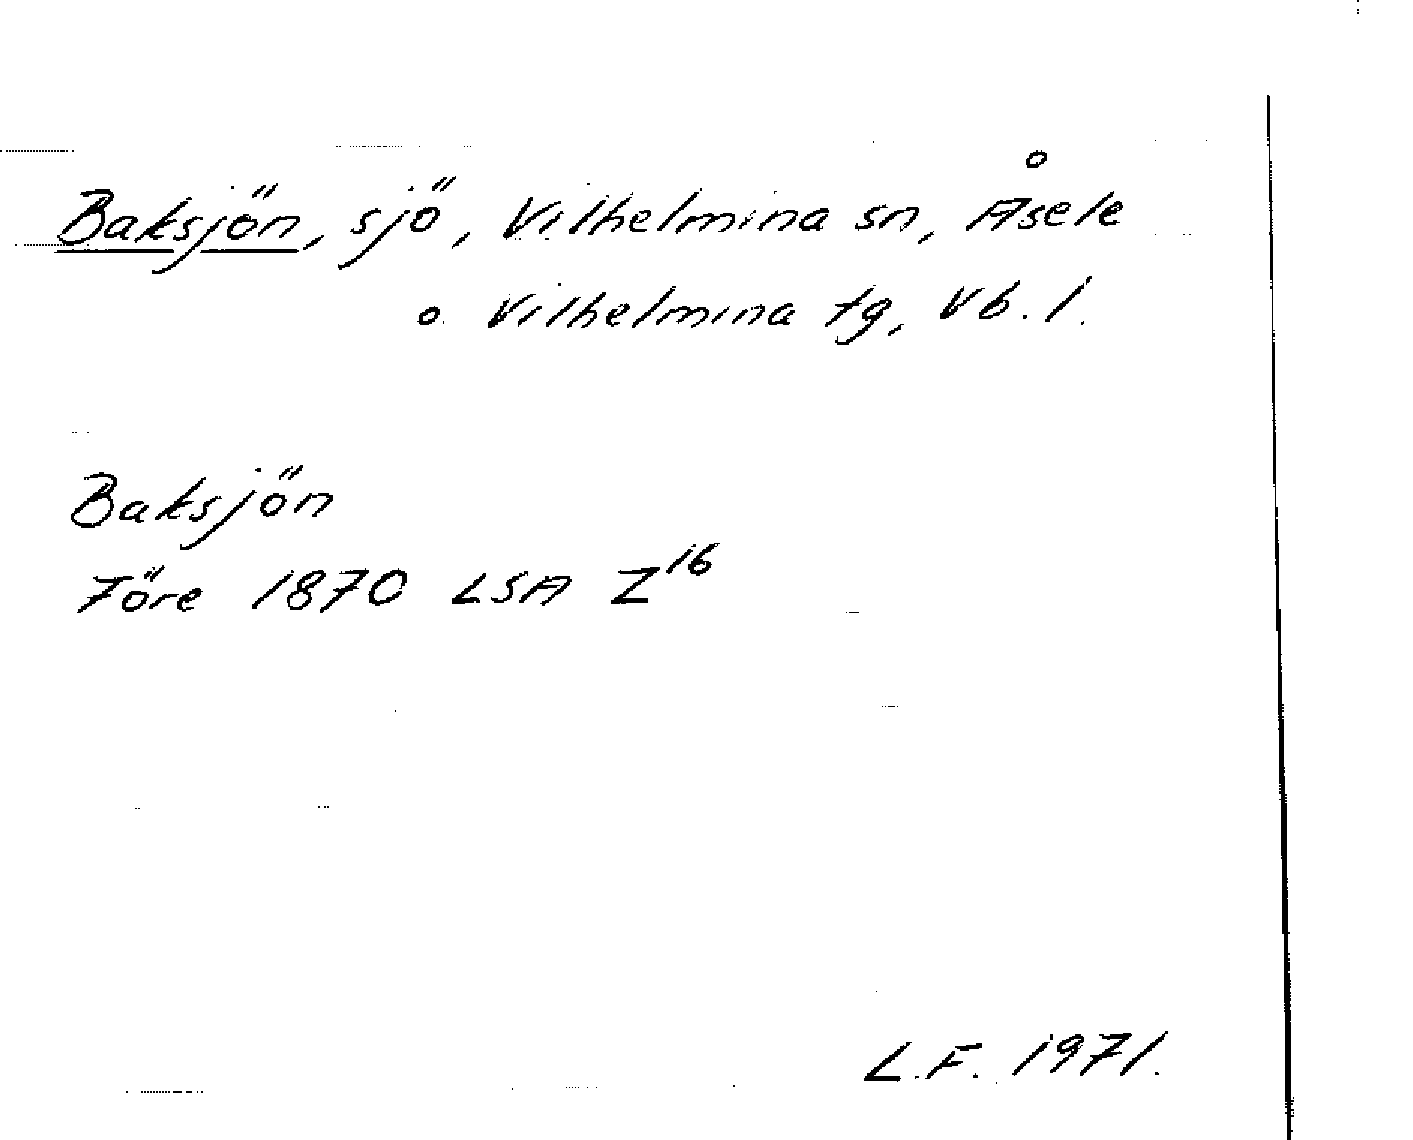 Baksjön, sjö, Vilhelmina sn, Åsele
o. Vilhelmina tg, Vb. l.
Baksjön
Före 1870 LSA Z16
L.F. 1971.